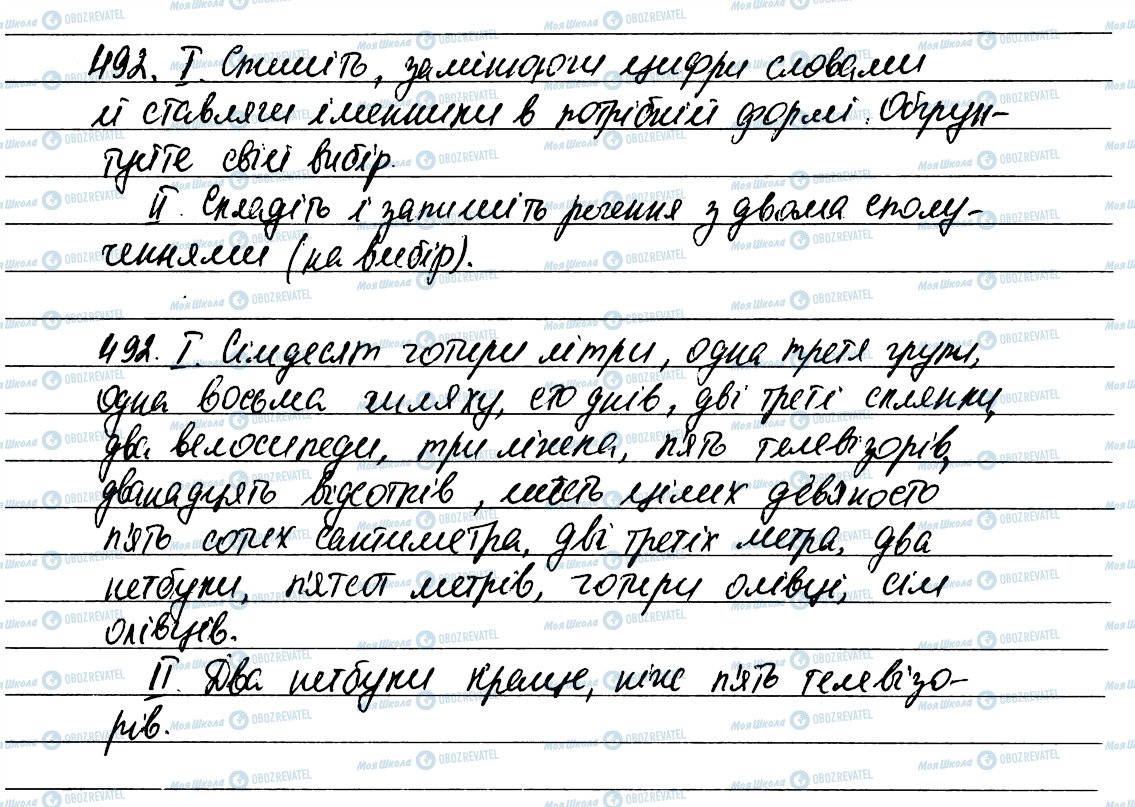 492. I. Спишіть, замінюючи цифри словами
й ставлячи іменники в потрібній формі. Обґрун-
туйте свій вибір.
II. Складіть і запишіть речення з двома сполу-
ченнями (на вибір).
492. I. Сімдесят чотири літри, одна третя групи,
одна восьма шляху, сто днів, дві треті спленки,
два велосипеди, три лінепа, п'ять телевізорів,
дванадцять відсотків, шість цілих дев'яносто
п'ять сотих сантиметра, дві третіх метра, два
нетбуки, п'ятсот метрів, чотири олівці, сім
олівців.
II. Два нетбуки краще, ніж п'ять телевізо-
рів.